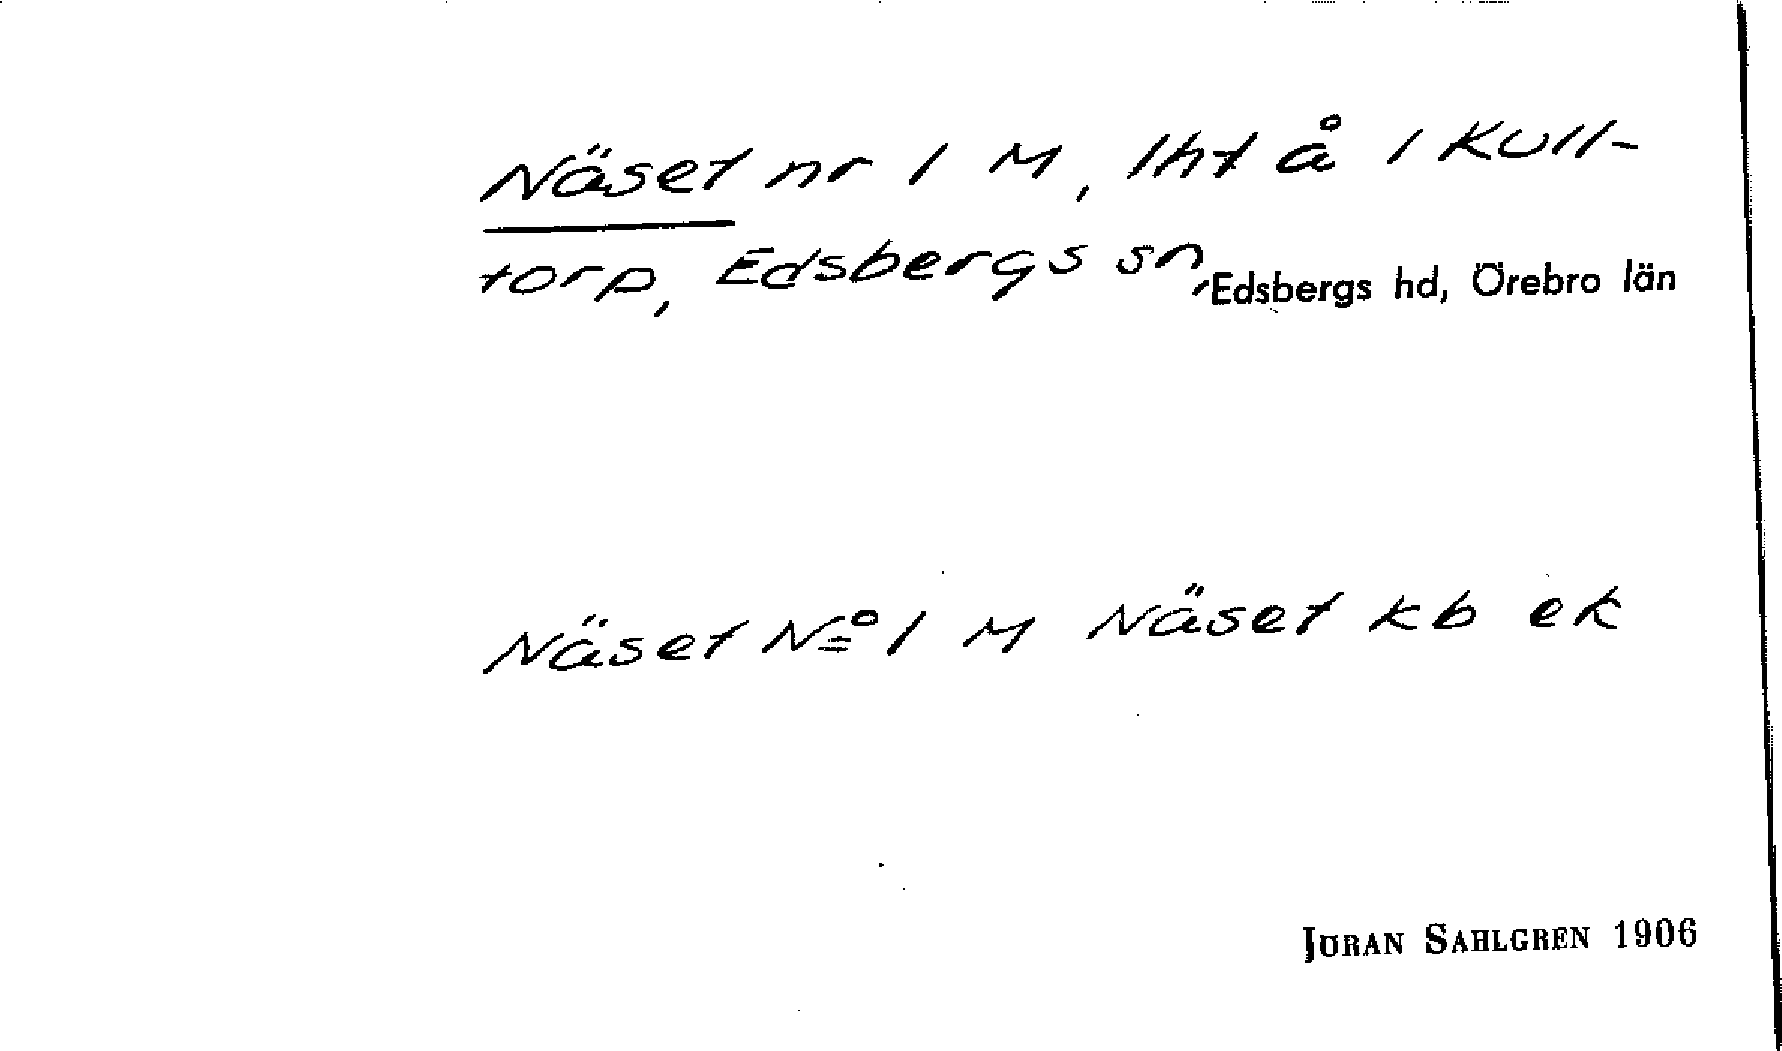 Näset nr 1 M, lht å 1 Kull-
torp, Edsbergs sn, Edsbergs hd, Örebro län
Näset No 1 M Näset kb ek
JÖRAN SAHLGREN 1906